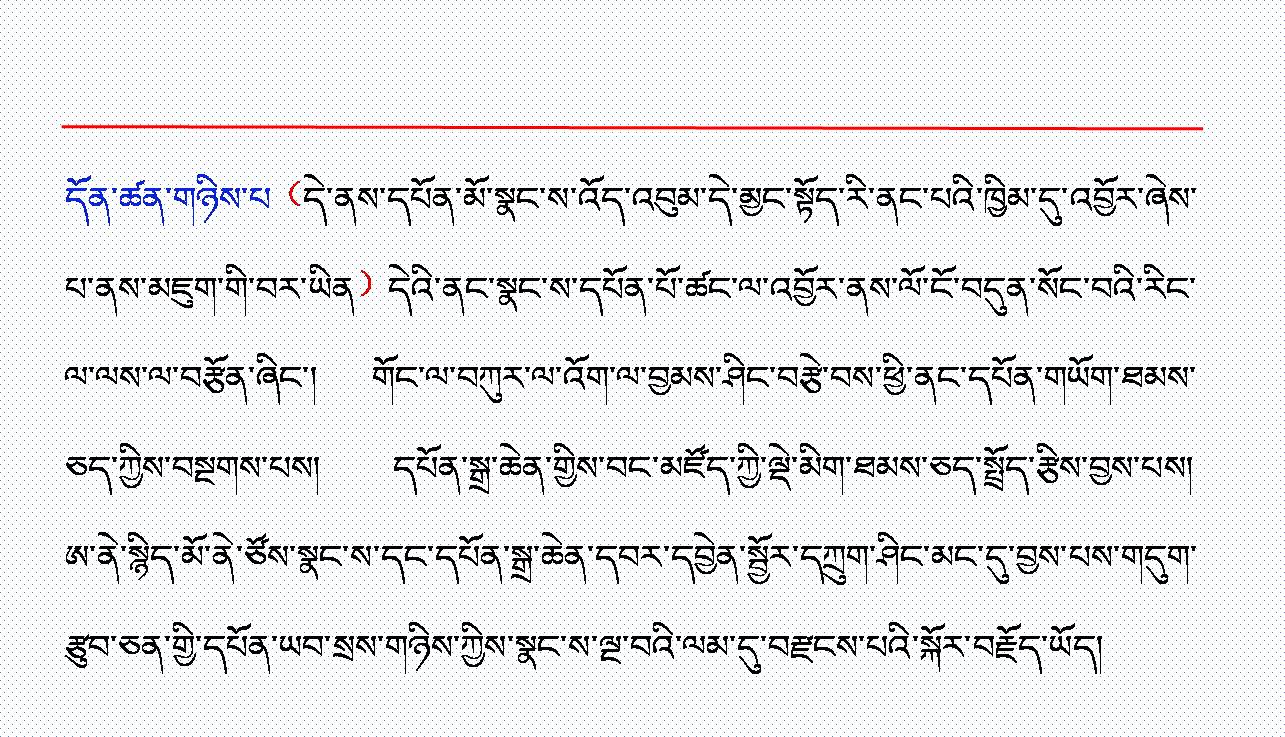 དོན་ཚན་གཉིས་པ (དེ་ནས་དཔོན་མོ་སྣང་ས་འོད་འབུམ་དེ་མྱང་སྟོད་རི་ནང་པའི་ཁྱིམ་དུ་འབྱོར་ཞེས་
པ་ནས་མཇུག་གི་བར་ཡིན) དེའི་ནང་སྣང་ས་དཔོན་པོ་ཚང་ལ་འབྱོར་ནས་ལོ་ངོ་བདུན་སོང་བའི་རིང་
ལ་ལས་ལ་བརྩོན་ཞིང་། གོང་ལ་བཀུར་ལ་འོག་ལ་བྱམས་ཤིང་བརྩེ་བས་ཕྱི་ནང་དཔོན་གཡོག་ཐམས་
ཅད་ཀྱིས་བསྔགས་པས། དཔོན་སྒྲ་ཆེན་གྱིས་བང་མཛོད་ཀྱི་ལྡེ་མིག་ཐམས་ཅད་སྤྲོད་རྩིས་བྱས་པས།
ཨ་ནེ་སྙིད་མོ་ནེ་ཙོས་སྣང་ས་དང་དཔོན་སྒྲ་ཆེན་དབར་དབྱེན་སྦྱོར་དཀྲུག་ཤིང་མང་དུ་བྱས་པས་གདུག་
རྩུབ་ཅན་གྱི་དཔོན་ཡབ་སྲས་གཉིས་ཀྱིས་སྣང་ས་ལྔ་བའི་ལམ་དུ་བརྫངས་པའི་སྐོར་བརྗོད་ཡོད།